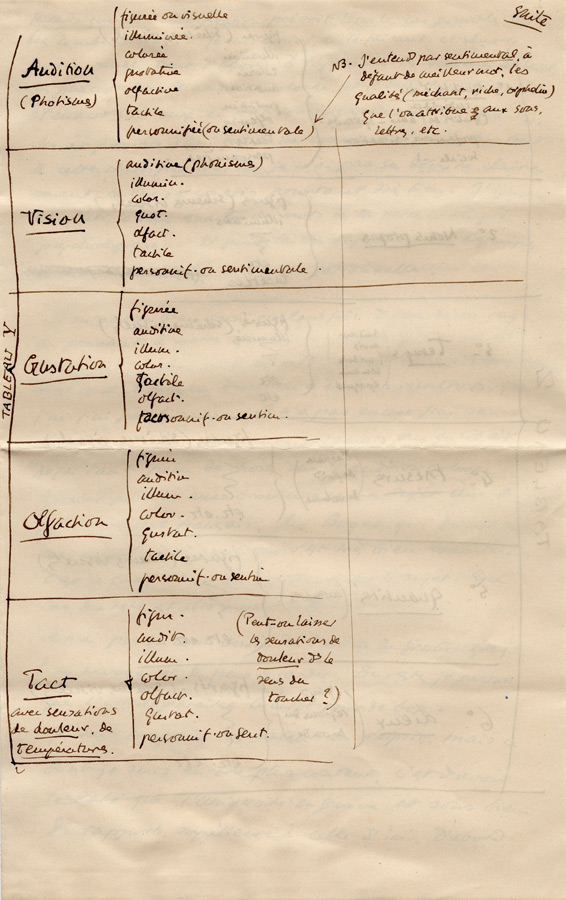 Suite
TABLEAU Y
Audition
(Photismes)
figurée ou visuelle
illuminée
colorée
gustative
olfactive
tactile
personnifiée (ou sentimentale)
NB. J'entend par sentimental, à
défaut de meilleur mot, les
qualités (méchant, riche, orphelin)
que l'on attribue aux sons,
lettres, etc.
Vision
auditive (phonismes)
illumin.
color.
gust.
olfact.
tactile
personnif. ou sentimentale.
Gustation
figurée
auditive
illum.
color.
tactile
olfact.
personnif. ou sentim.
Olfaction
figurée
auditive
illum.
color.
gustat.
tactile
personnif. ou sentim
Tact
avec sensations
de douleur, de
températures.
figur.
audit.
illum.
color.
olfact.
gustat.
personnif. ou sent.
(Peut-on laisser
les sensations de
douleur ds le
sens du
toucher?)